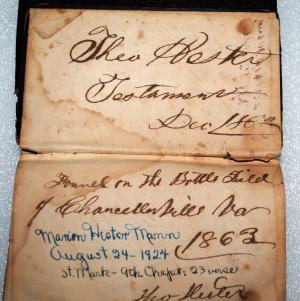 Theo Kester
Testament
Dec 1862
Found on The Battle Field
of Chancellorville Va
1863
Marion Hester Mann
August 24 - 1924
St. Mark - 9th Chapt: 23 verse
Theo Kester